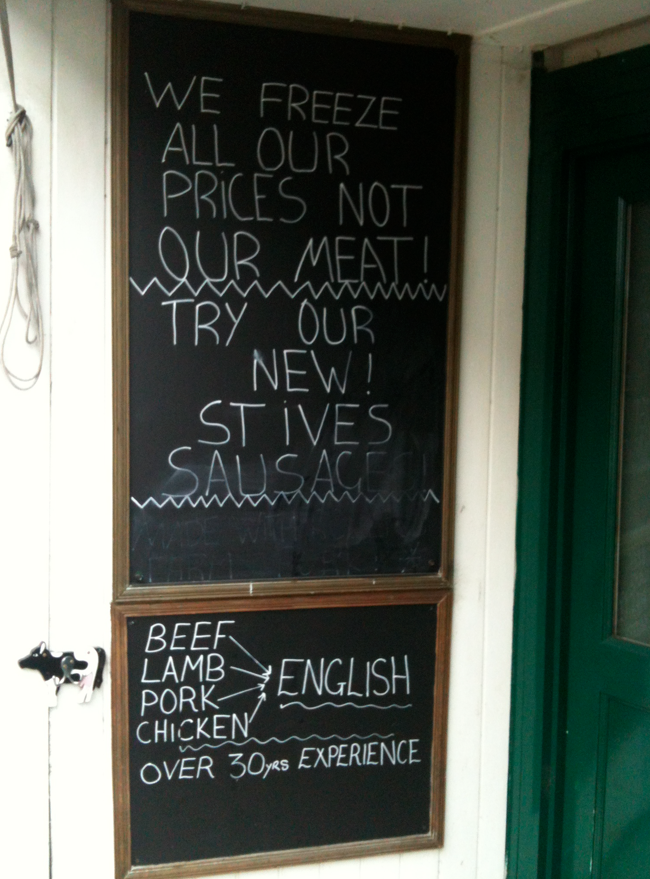 WE FREEZE
ALL OUR
PRICES NOT
OUR MEAT!
TRY OUR
NEW!
ST IVES
SAUSAGES!
MADE WITH
BEEF
LAMB
PORK
CHICKEN
ENGLISH
OVER 30YRS EXPERIENCE